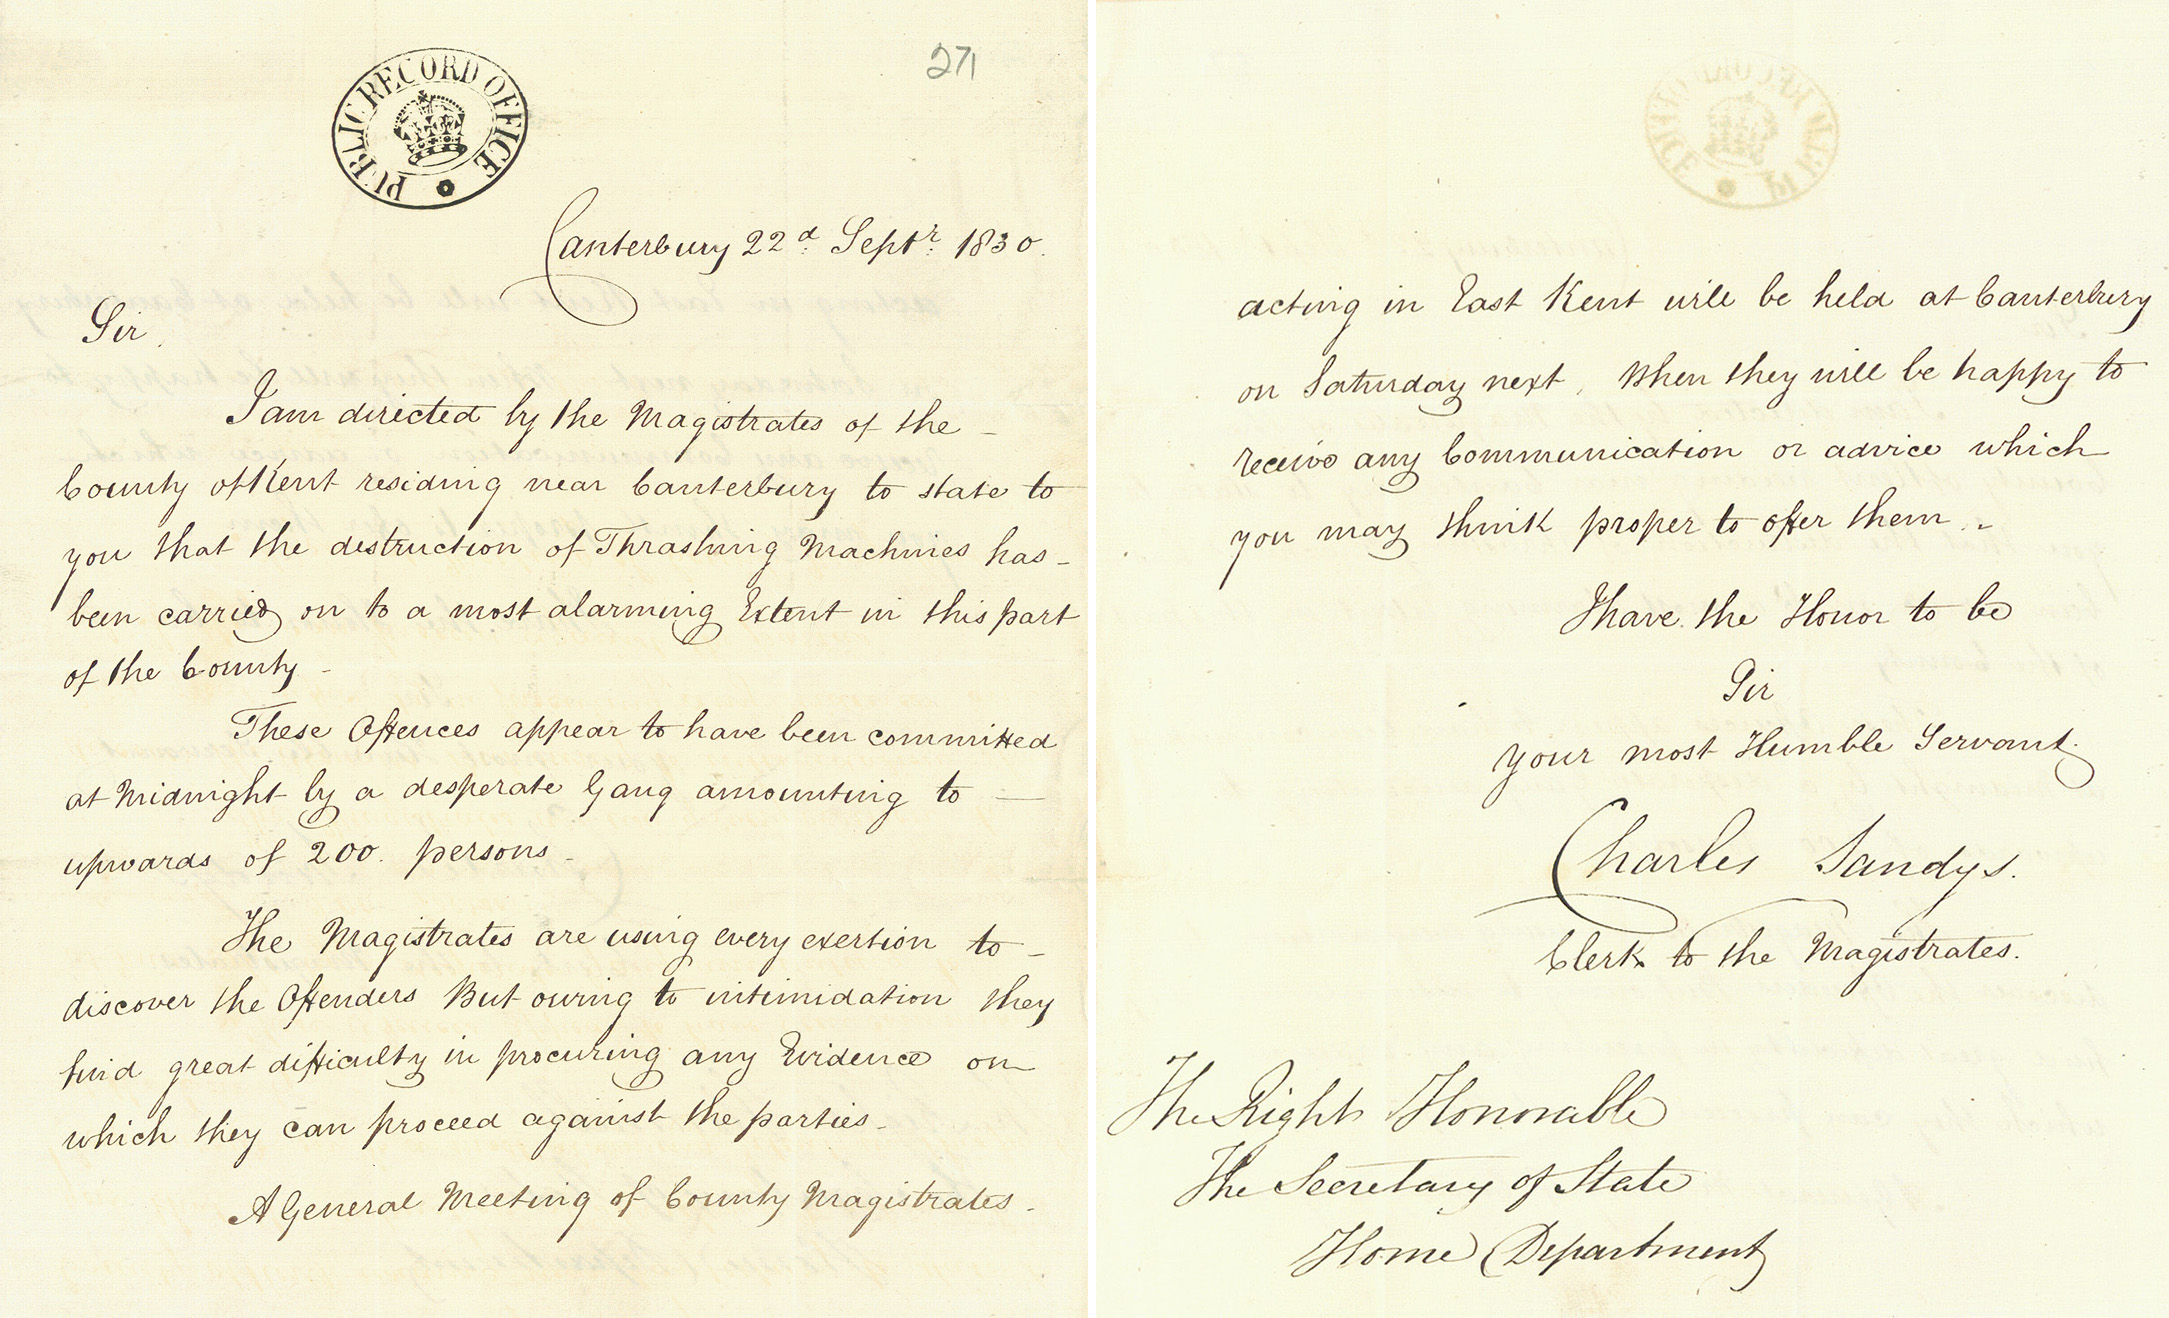 PUBLIC RECORD OFFICE
271
Canterbury 22d Septr 1830.
Sir,
I am directed by the Magistrates of the
County of Kent residing near Canterbury to state to
you that the destruction of Thrashing Machines has
been carried on to a most alarming Extent in this part
of the County
These Offences appear to have been committed
at Midnight by a desperate Gang amounting to
upwards of 200. persons
The Magistrates are using every exertion to
discover the Offenders But owing to intimidation they
find great difficulty in procuring any Evidence on
which they can proceed against the parties
A General Meeting of County Magistrates
acting in East Kent will be held at Canterbury
on Saturday next, When they will be happy to
receive any Communication or advice which
you may think proper to offer them.
I have the Honor to be
Sir
your most Humble Servant
Charles Sandys.
Clerk to the Magistrates.
The Right Honorable
The Secretary of State
Home Department